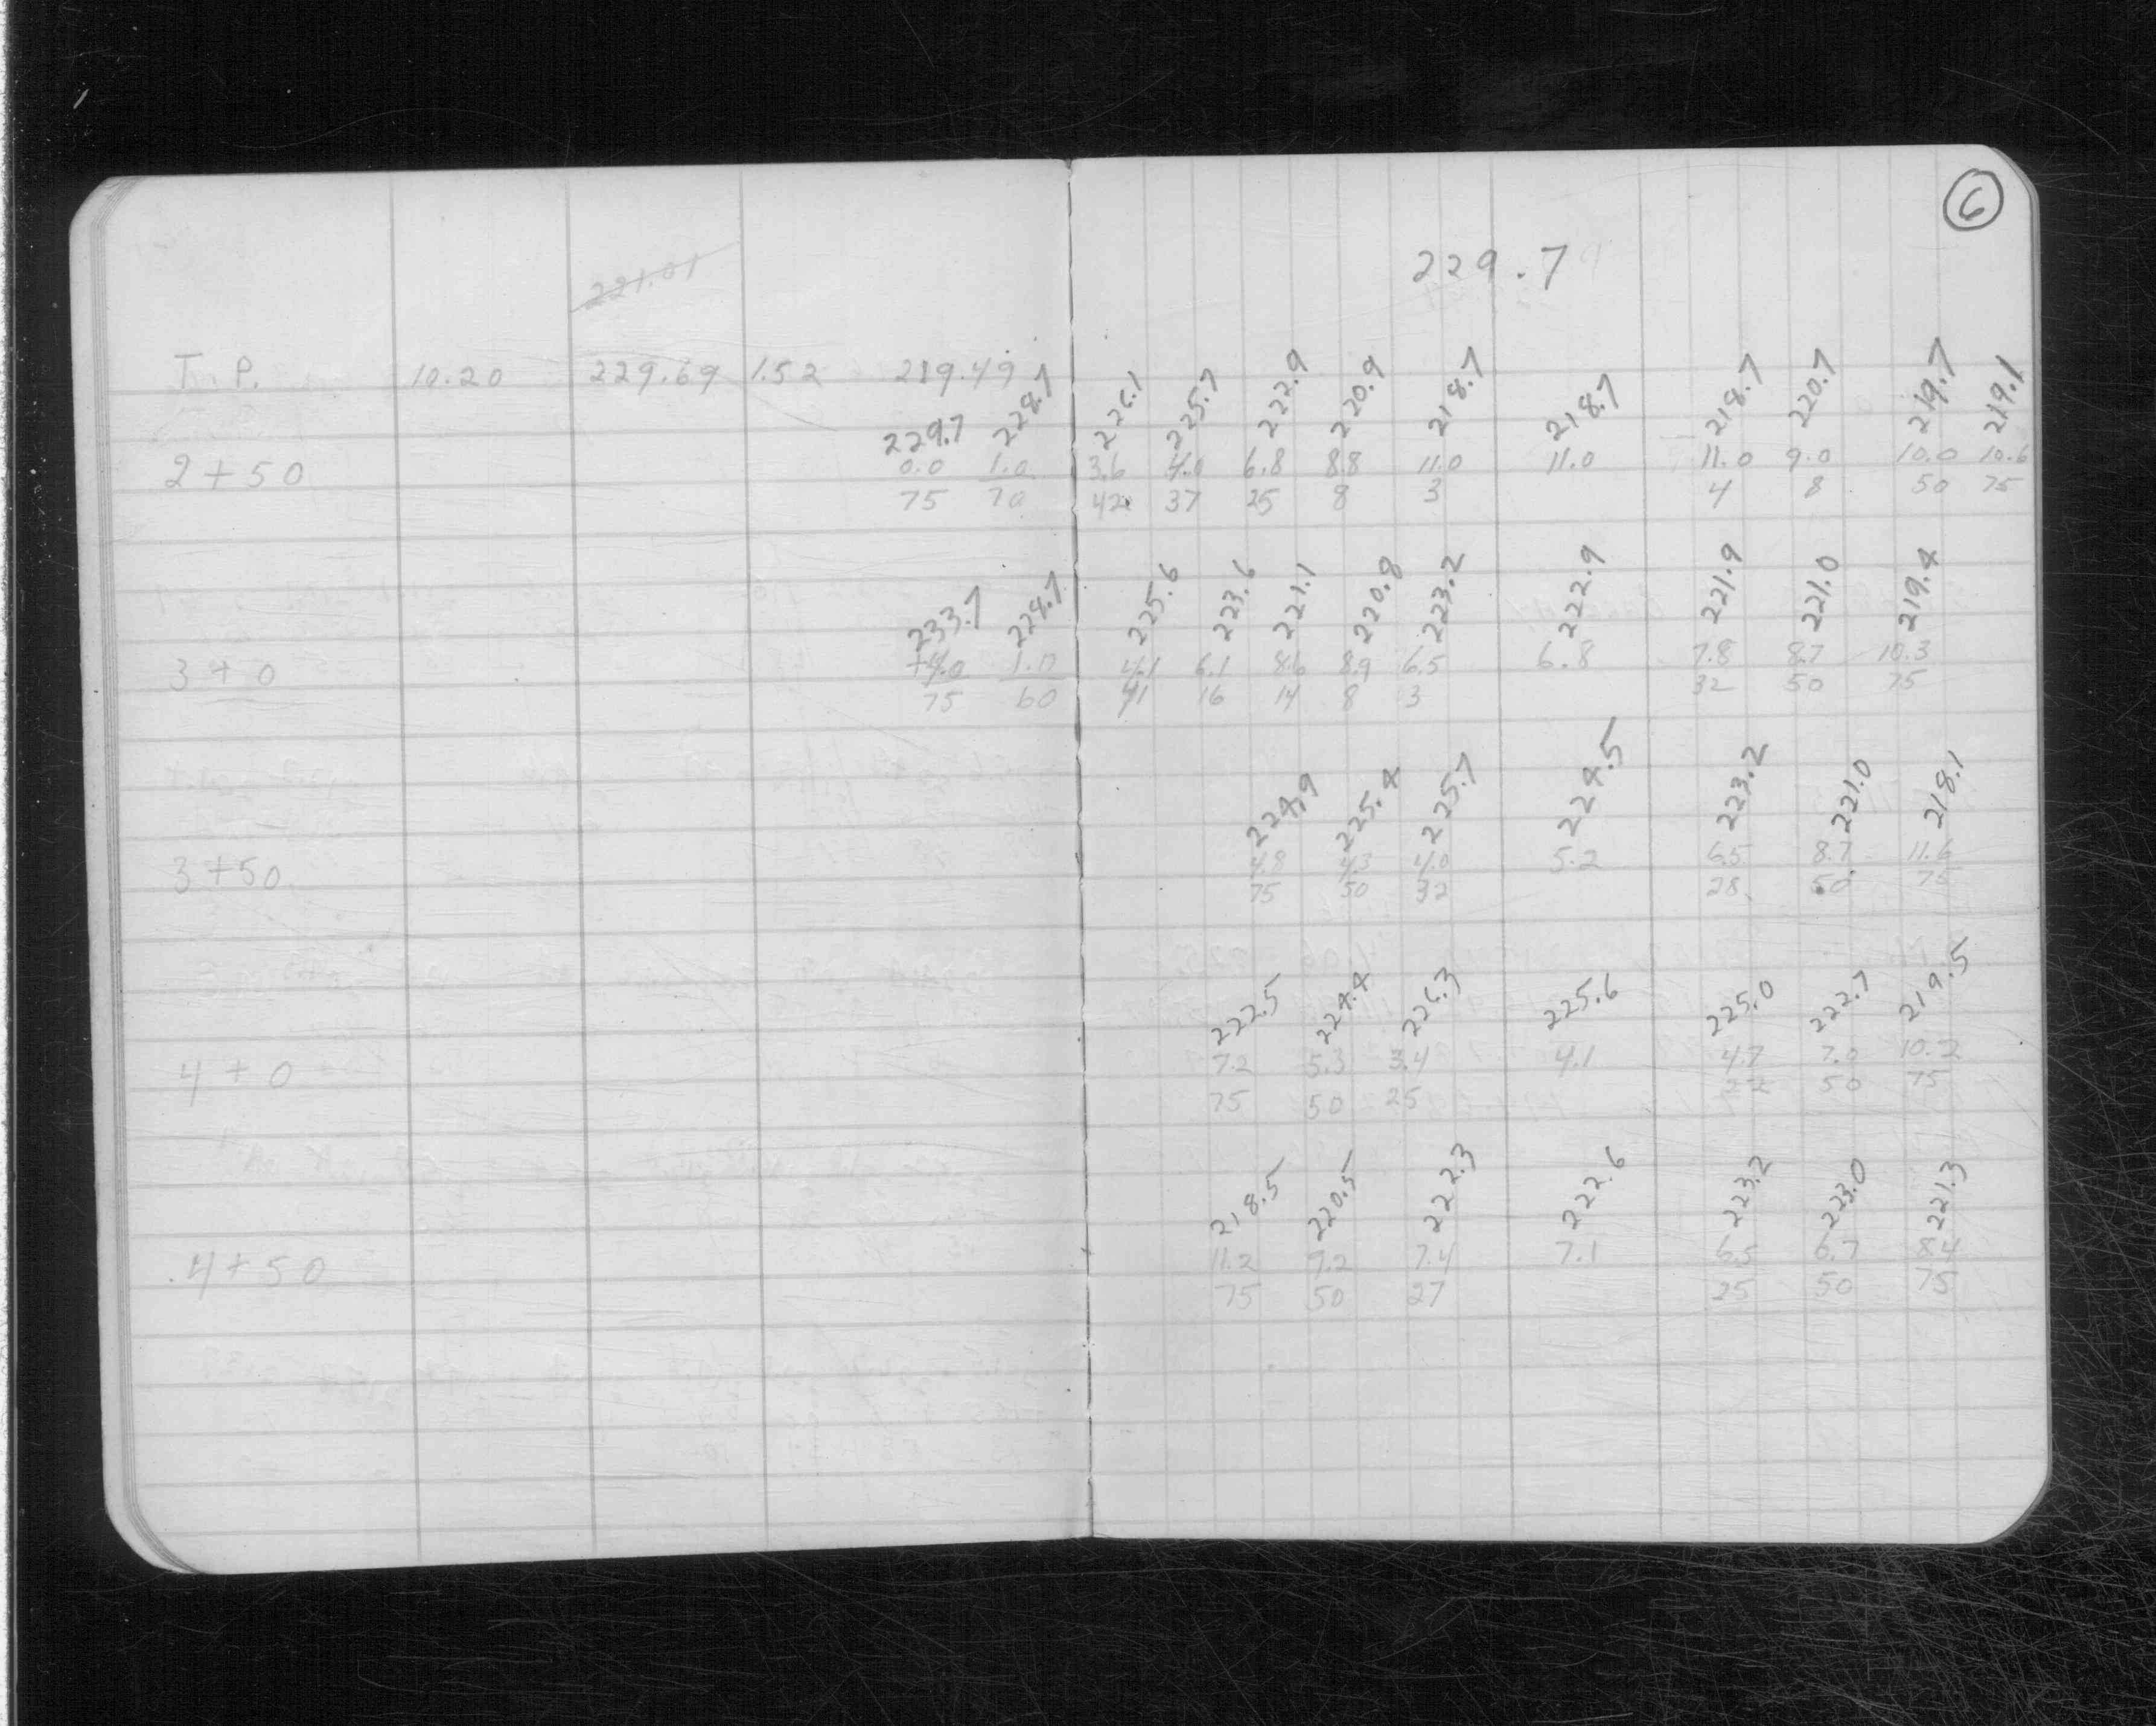 6
221.01
229.7
T. P. 10.20 229.69 1.52 219.49
229.7 228.7 226.1 225.7 222.9 220.9 218.7 218.7 218.7 220.7 219.7 219.1
2+50 0.0 1.0 3.6 4.0 6.8 8.8 11.0 11.0 11.0 9.0 10.0 10.6
75 70 42 37 25 8 3 4 8 50 75
233.7 228.7 225.6 223.6 221.1 220.8 223.2 222.9 221.9 221.0 219.4
3+0 +4.0 1.0 4.1 6.1 8.6 8.9 6.5 6.8 7.8 8.7 10.3
75 60 41 16 14 8 3 32 50 75
224.9 225.4 225.7 224.5 223.2 221.0 218.1
3+50 4.8 4.3 4.0 5.2 6.5 8.7 11.6
75 50 32 28 50 75
222.5 224.4 226.3 225.6 225.0 222.7 219.5
4+0 7.2 5.3 3.4 4.1 4.7 7.0 10.2
75 50 25 22 50 75
218.5 220.5 222.3 222.6 223.2 223.0 221.3
4+50 11.2 9.2 7.4 7.1 6.5 6.7 8.4
75 50 27 25 50 75